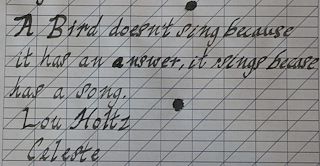 A Bird doesn't sing because
it has an answer, it sings becase
has a song.
Lou Holtz
Celeste